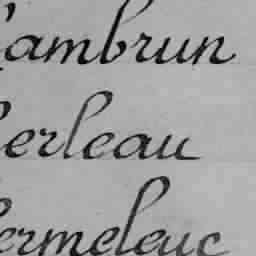 Cambrun
erleau
ermeleuc